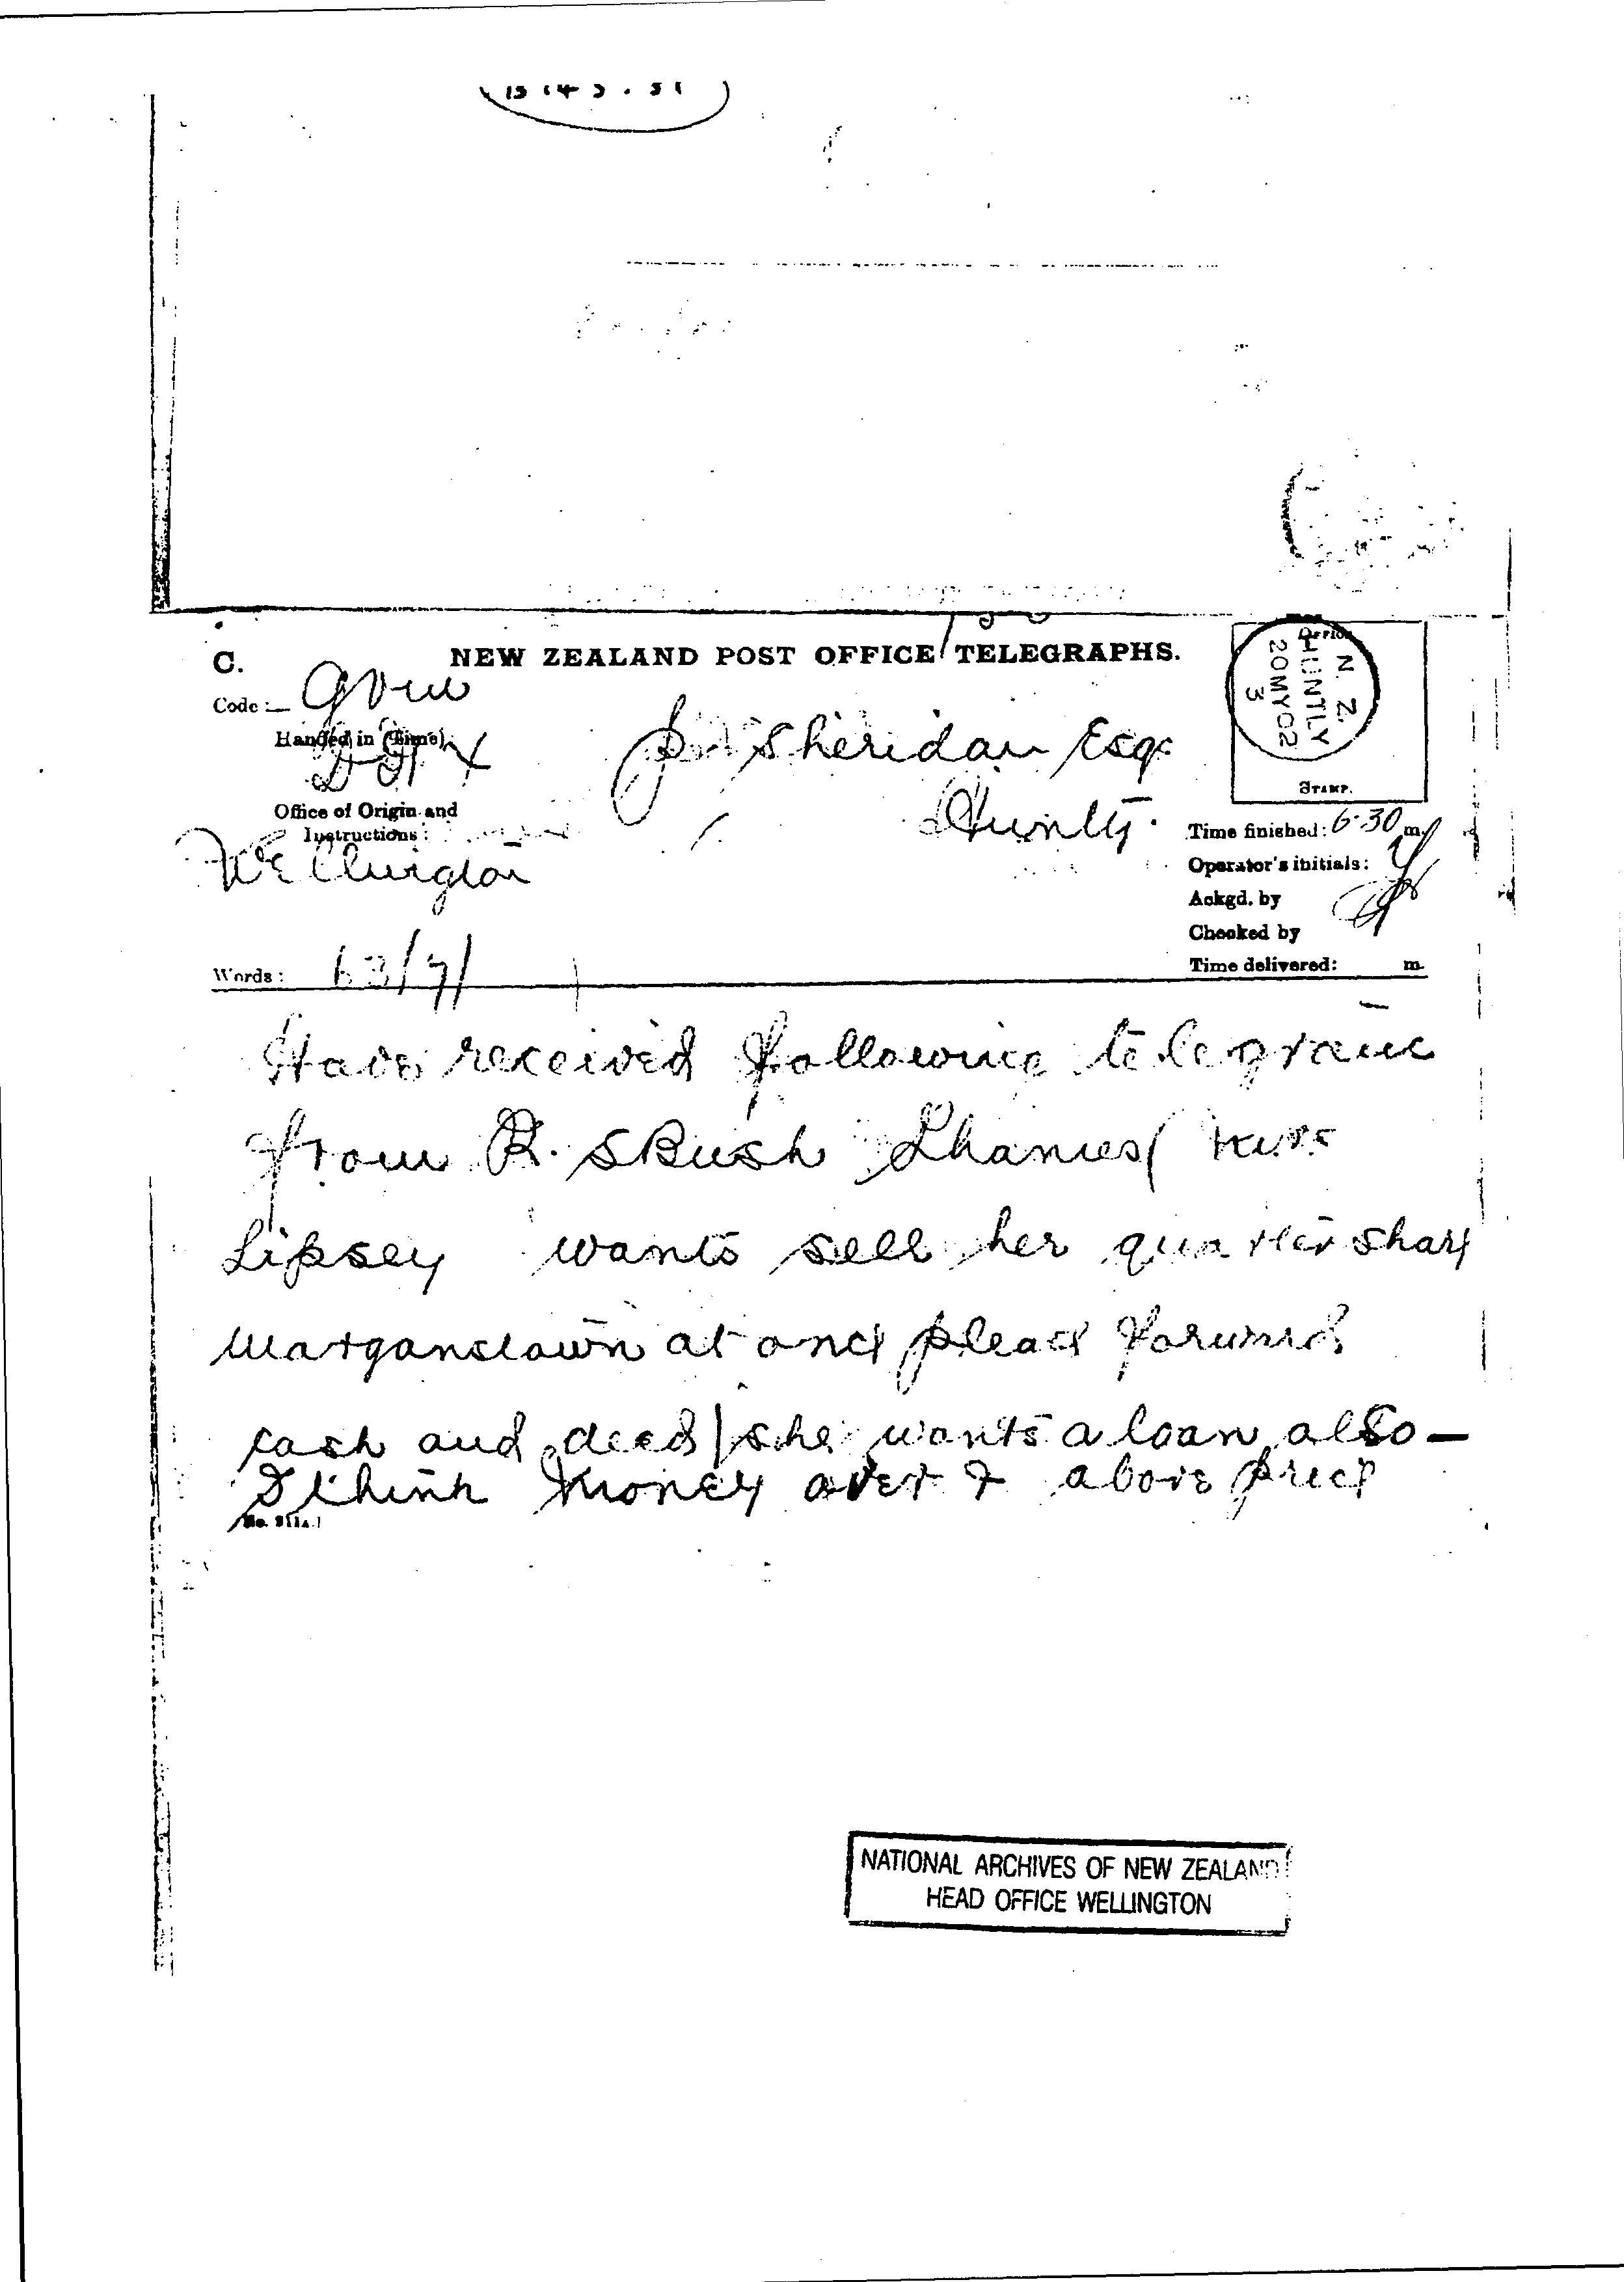 C.
NEW ZEALAND POST OFFICE TELEGRAPHS.
Code:
Handed in (Time)
Office of Origin and
Instructions:
Wellington
Words: 63/7/
Sheridan Esq
Huntly.
OFFICE
N. Z.
HUNTLY
20MY02
3
STAMP.
Time finished: 6.30 m.
Operator's initials:
Ackgd. by
Checked by
Time delivered: m.
Have received following telegram
from R. S Bush Thames (Mrs
Lipsey wants sell her quarter share
Morgantown at once please forward
cash and deed/she wants a loan also —
I think money over & above price
NATIONAL ARCHIVES OF NEW ZEALAND
HEAD OFFICE WELLINGTON